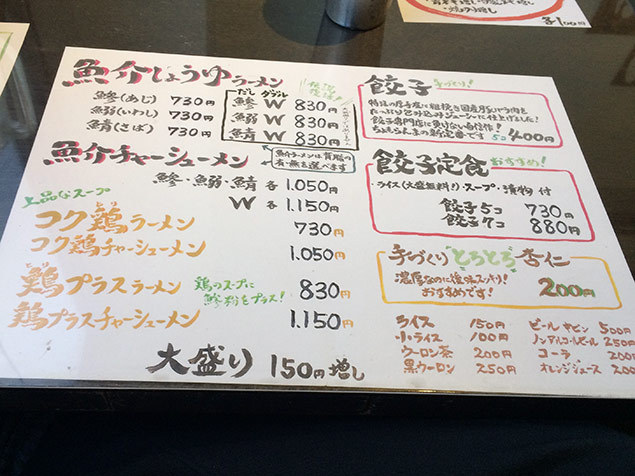 魚介しょうゆラーメン
鯵(あじ) 730円
鰯(いわし) 730円
鯖(さば) 730円
だし ダブル
鯵 W 830円
鰯 W 830円
鯖 W 830円
魚介ラーメンは背脂の
有・無を選べます
魚介チャーシューメン
鯵・鰯・鯖 各 1.050円
W 各 1.150円
上品なスープ
コク鶏ラーメン 730円
コク鶏チャーシューメン 1.050円
鶏プラスラーメン 830円
鶏のスープに
鯵粉をプラス!
鶏プラスチャーシューメン 1.150円
大盛り 150円増し
餃子 手づくり!
特注の厚手皮に粗挽き国産豚ひき肉を
たっぷり包み込みジューシーに仕上げました!
餃子専門店に負けない自信作!
5コ 400円
餃子定食 おすすめ!
・ライス(大盛無料!)・スープ・漬物 付
餃子5コ 730円
餃子7コ 880円
手づくり とろとろ 杏仁
濃厚なのに後味スッキリ!
おすすめです! 200円
ライス 150円
小・ライス 100円
ウーロン茶 200円
黒ウーロン 250円
ビール 中ビン 500円
ノンアルコールビール 250円
コーラ 200
オレンジジュース 200